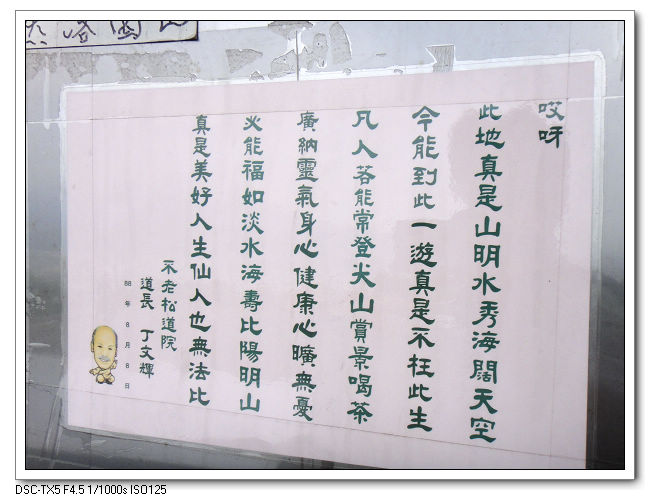 哎呀
此地真是山明水秀海闊天空
今能到此一遊真是不枉此生
凡人若能常登尖山賞景喝茶
廣納靈氣身心健康心曠無憂
必能福如淡水海壽比陽明山
真是美好人生仙人也無法比
不老松道院
道長 丁文輝
88年8月8日
DSC-TX5 F4.5 1/1000s ISO125